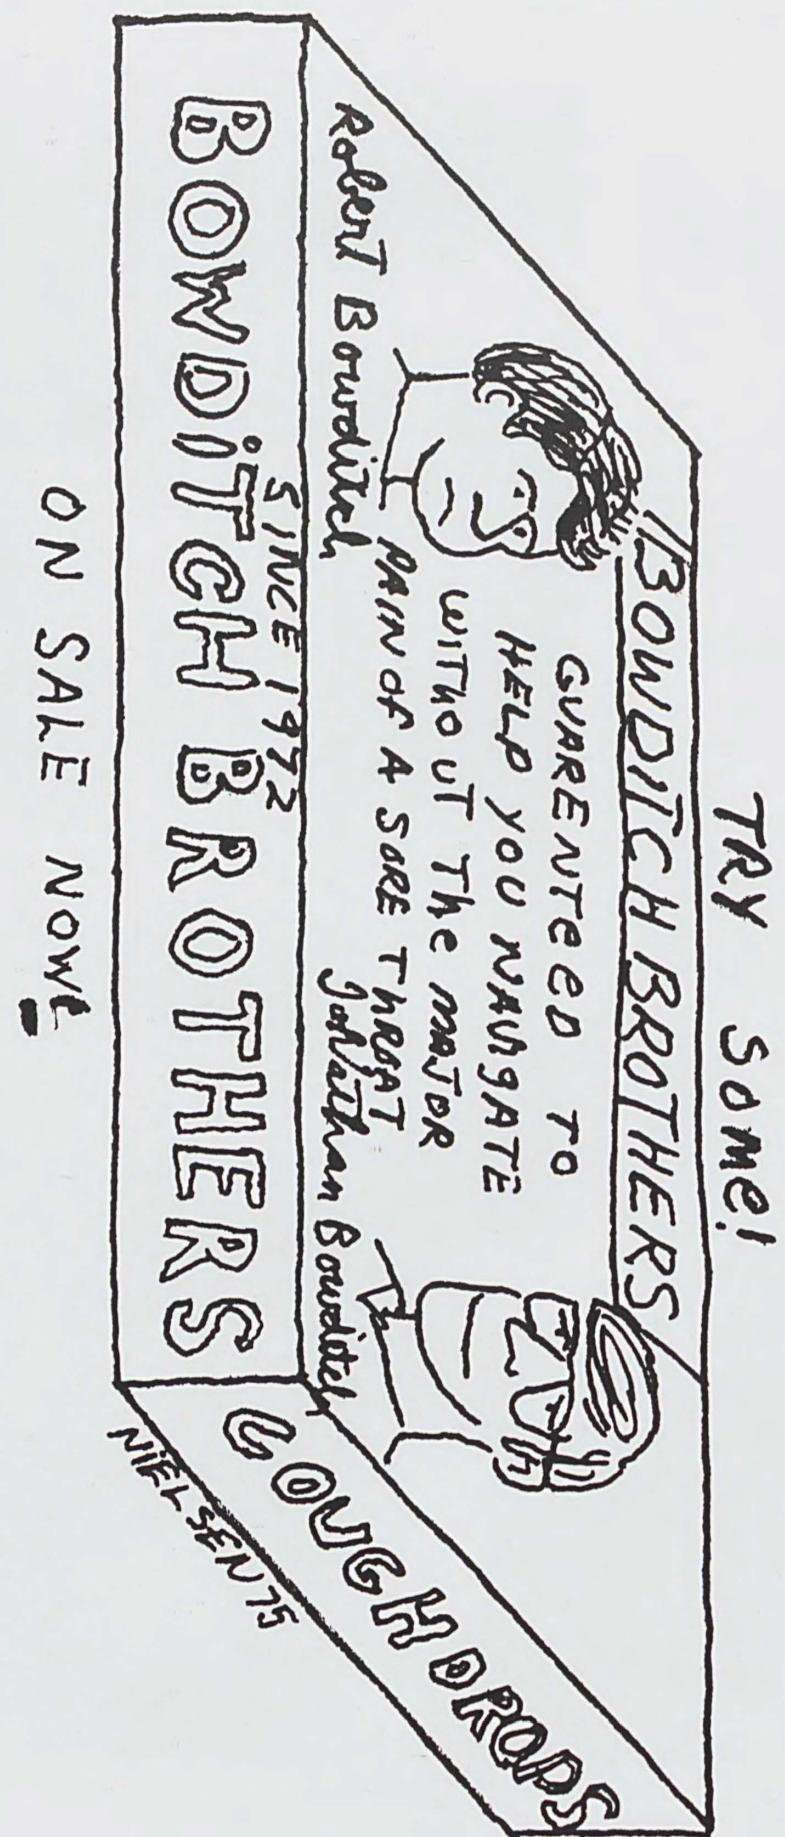 TRY SOME!
BOWDITCH BROTHERS
GUARENTEED TO
HELP YOU NAVIGATE
WITHOUT THE MAJOR
PAIN OF A SORE THROAT
Robert Bowditch
Jonathan Bowditch
SINCE 1972
BOWDITCH BROTHERS
COUGH DROPS
NIELSEN 75
ON SALE NOW!